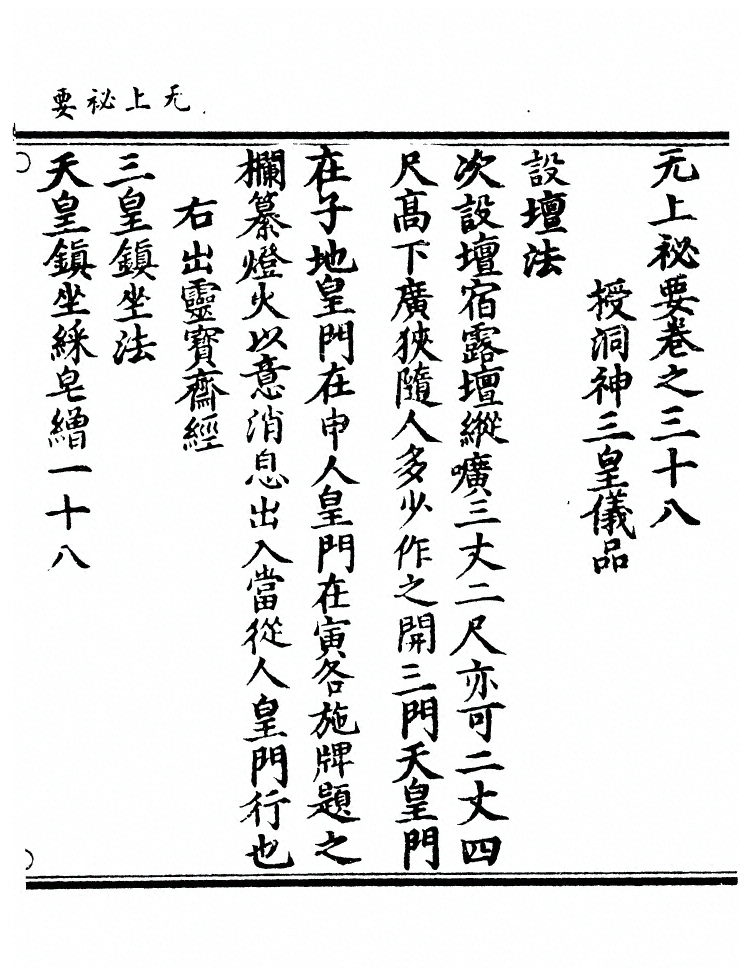 无上祕要
无上祕要卷之三十八
授洞神三皇儀品
設壇法
次設壇宿露壇縱曠三丈二尺亦可二丈四
尺高下廣狹隨人多少作之開三門天皇門
在子地皇門在申人皇門在寅各施牌題之
欄纂燈火以意消息出入當從人皇門行也
右出靈寶齋經
三皇鎮坐法
天皇鎮坐綵皂繒一十八